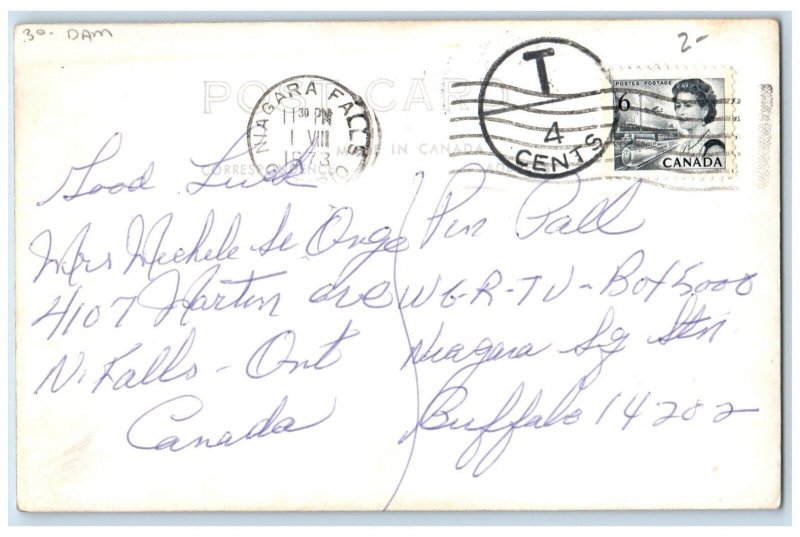 30- DAM
2-
POST CARD
NIAGARA FALLS
11 30 PM
1 VIII
1973
T
4
CENTS
POSTES POSTAGE
6
CANADA
MADE IN CANADA
CORRESPONDENCE
Good Luck
Mrs Michele St Onge
4107 Martin Ave
N. Falls - Ont
Canada
Pin Pall
WGR-TV - Box 5000
Niagara Sq Stn
Buffalo 14202